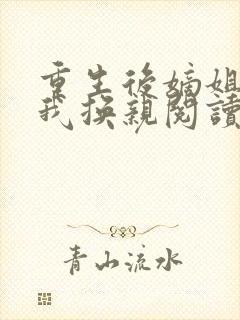 重生後嫡姐
我换親閱讀
青山流水